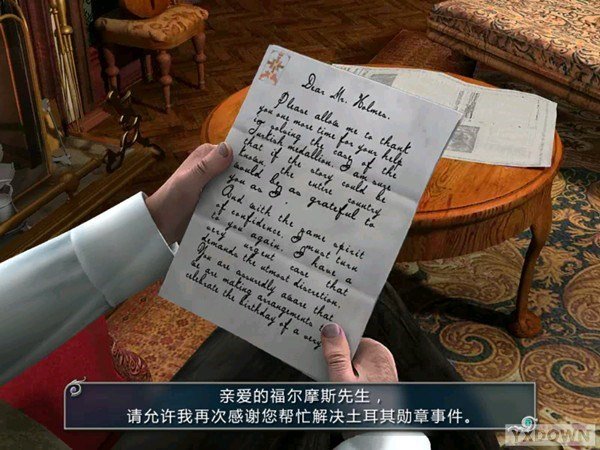 Dear Mr. Holmes.
Please allow me to thank
you one more time for your help
in solving the case of the
Turkish medallion. I am sure
that if the story could be
known, the entire country
would be as grateful to
you as I.
And with the same spirit
of confidence, I must turn
to you again. I have a
very urgent case that
demands the utmost discretion.
You are assuredly aware that
we are making arrangements to
celebrate the birthday of a very
亲爱的福尔摩斯先生，
请允许我再次感谢您帮忙解决土耳其勋章事件。
YXDOWN